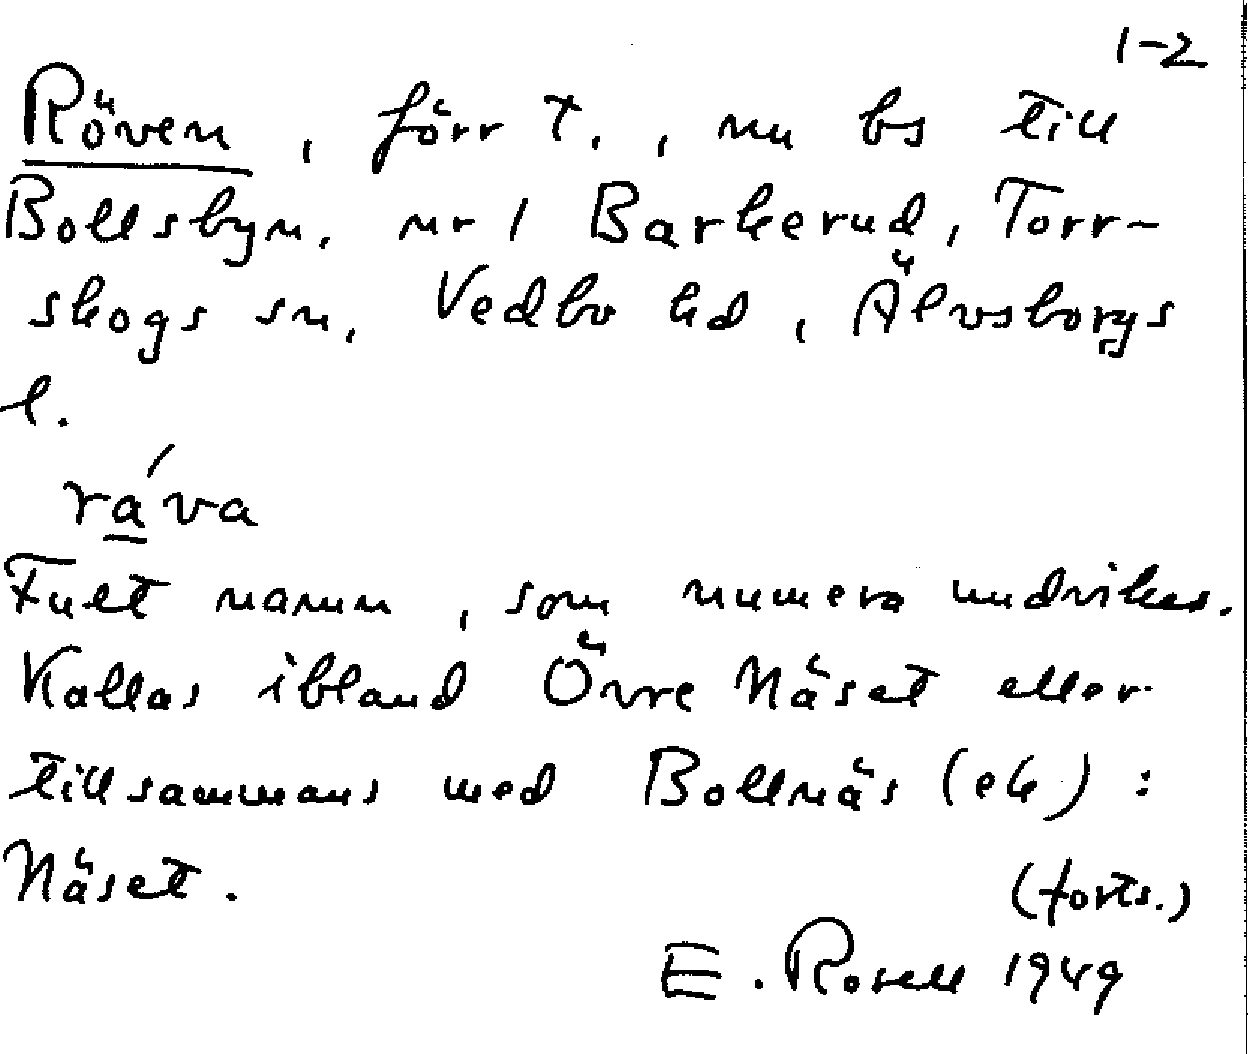 1-2
Röven, förr t., nu bs till
Bollsbyn, nr 1 Barkerud, Torr-
skogs sn, Vedbo hd, Älvsborgs
l.
rǻva
Fult namn, som numera undvikes.
Kallas ibland Övre Näset eller
tillsammans med Bollnäs (ek):
Näset.
(forts.)
E. Rosell 1949